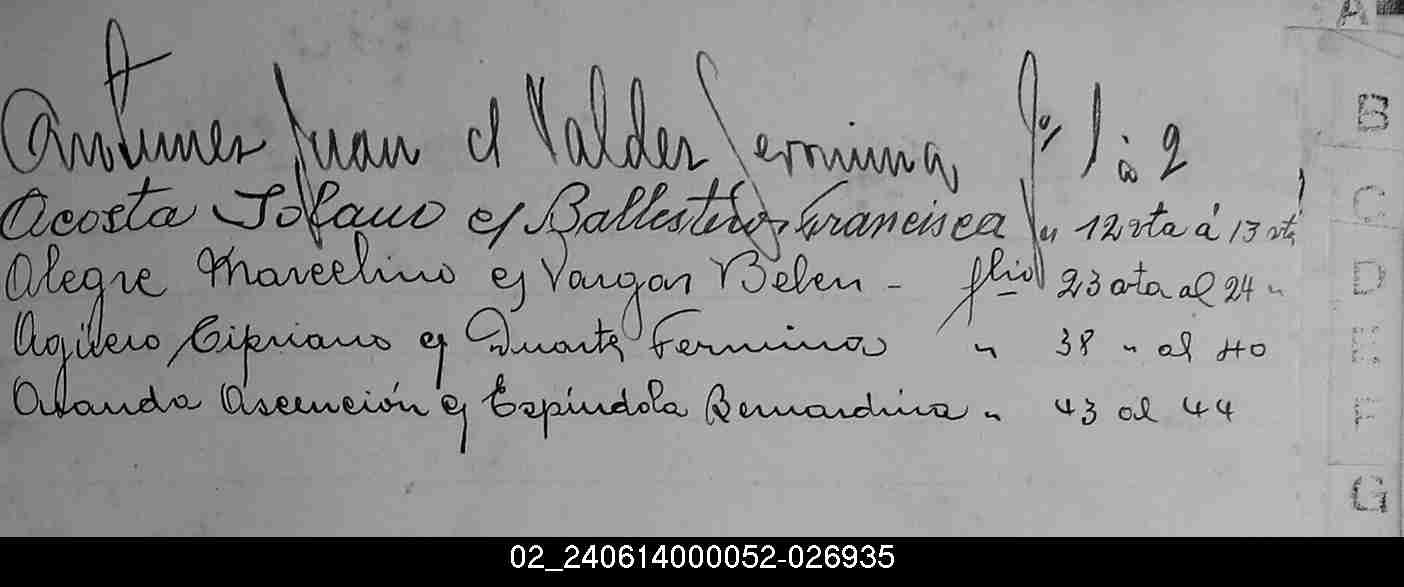 Antunez Juan c/ Valdez Jeronima fo/ 1 a 2
Acosta Tofano c/ Ballestero, Francisca fo " 12 vta á 13 vta
Alegre Marcelino c/ Vargas Belen - folio 23 vta al 24 "
Agüero Cipriano c/ Duarte Fermina " 38 " al 40
Aranda Ascención c/ Espíndola Bernardina " 43 al 44
A
B
C
D
E
F
G
02_240614000052-026935